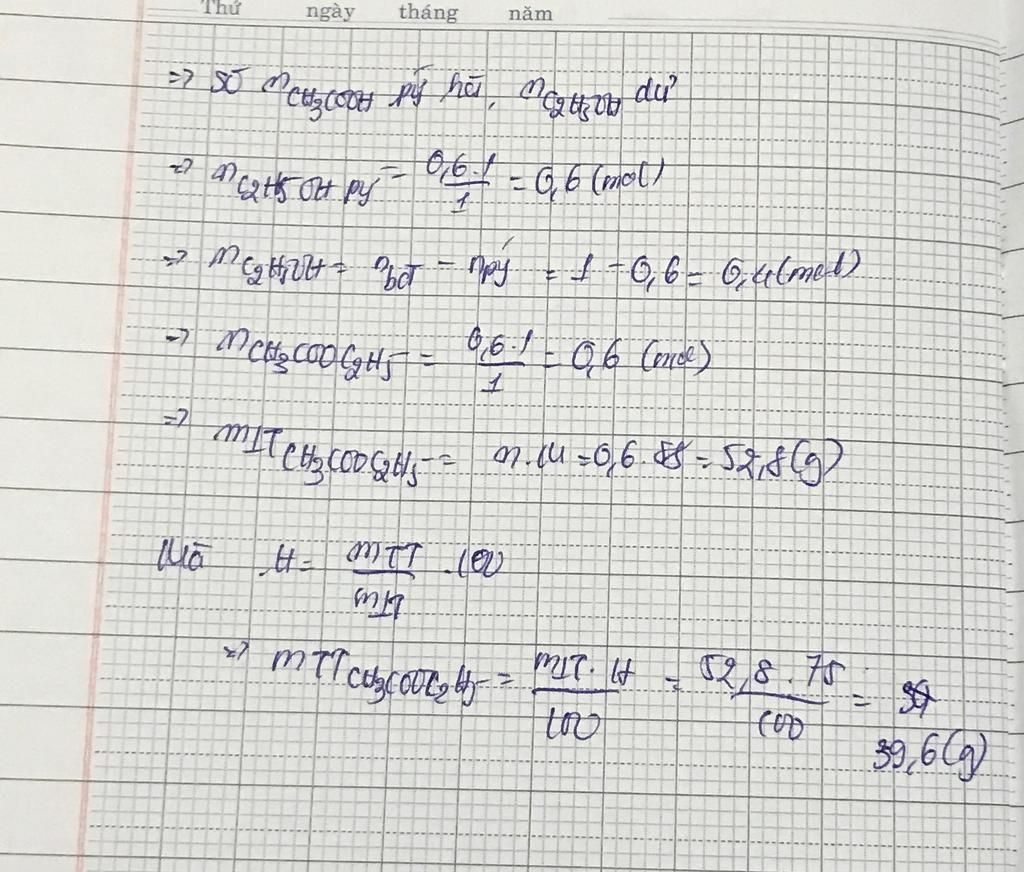 Thứ ngày tháng năm
=> số nCH3COOH pứ hết, nC2H5OH dư
=> nC2H5OH pứ = 0,6.1/1 = 0,6 (mol)
=> nC2H5OH = nbđ - npứ = 1 - 0,6 = 0,4 (mol)
=> nCH3COOC2H5 = 0,6.1/1 = 0,6 (mol)
=> mLTCH3COOC2H5 = n.M = 0,6.88 = 52,8 (g)
Mà H = mTT/mLT .100
=> mTTCH3COOC2H5 = mLT.H/100 = 52,8.75/100 =
39,6 (g)